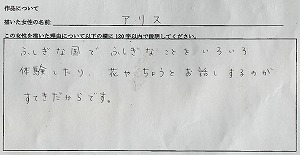 作品について
描いた女性の名前: アリス
この女性を描いた理由について以下の欄に120字以内で説明してください。
ふしぎな国で ふしぎなことをいろいろ
体験したり、花やちょうとお話しするのが
すてきだからです。